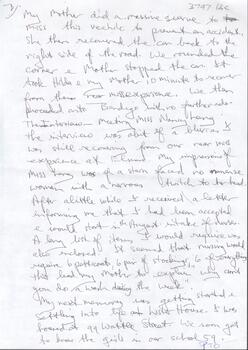 3787 12c
My Mother did a massive swerve to
miss this vehicle to prevent an accident.
She then recovered the car back to the
right side of the road. We rounded the
corner & Mother stopped the car. It
took Hilda & my Mother 10 minutes to recover
from there near miss experience. We then
proceeded into Bendigo with no further ado
The Interview - Meeting Miss Nancy Long
the interview was a bit of a blur as I
was still recovering from our near miss
experience at Elmore. My impression of
Miss Long was of a stern faced no nonsense
women with a nervous twitch to to had
After a little while I received a letter
informing me that I had been accepted
& would start in the August intake of nurses.
A long list of items I would require was
also inclosed. It seemed that nursing would
require 6 petticoats, 6 pair of stockings, 6 of everything
that lead my Mother to explain "why cant
you do a wash during the week".
My next memory was getting started &
settling into life at Wilt House. I was
found at 99 Wattle Street. We soon got
to know the girls in our school 59.